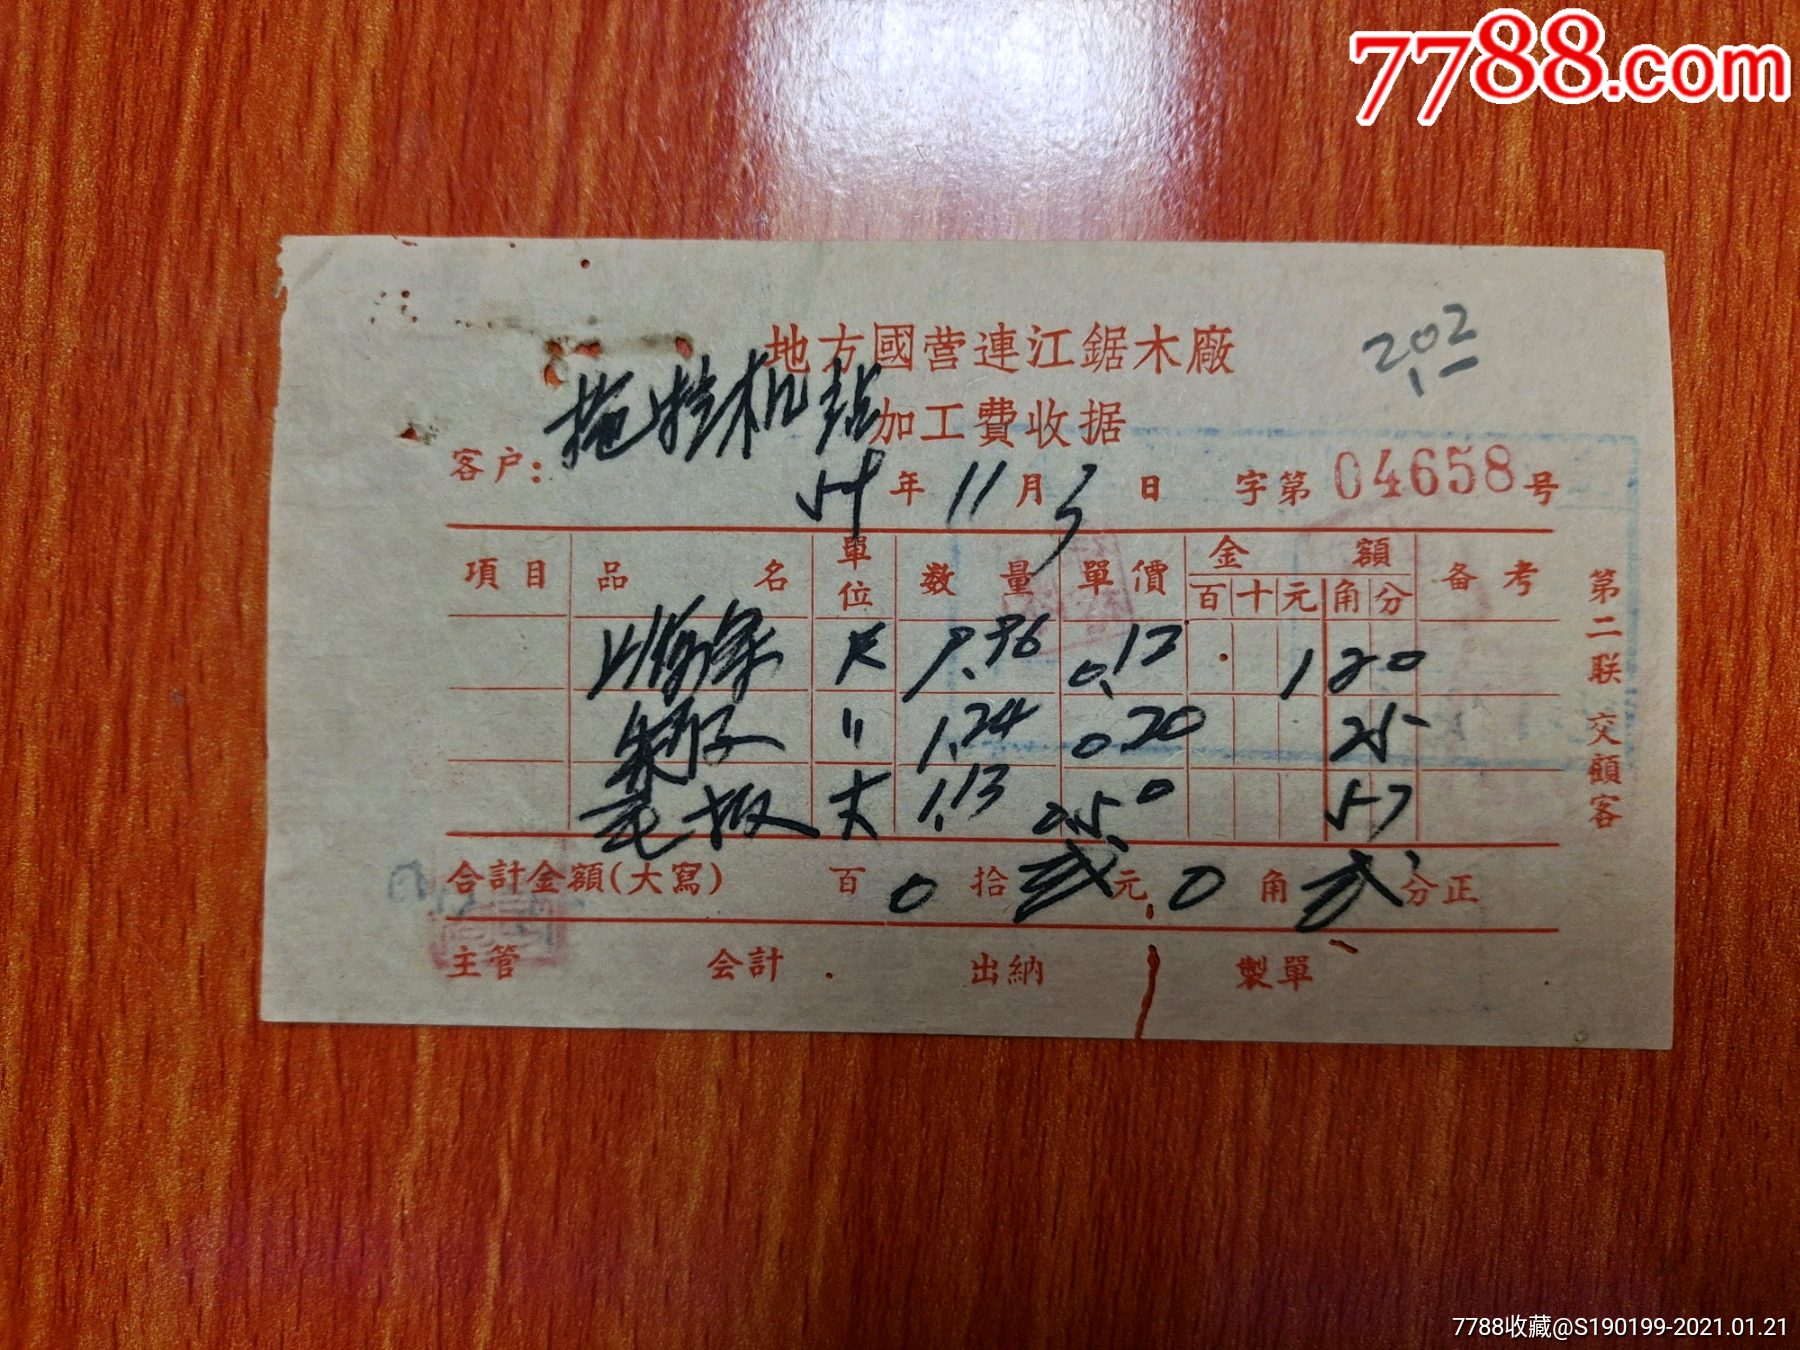 7788.com
地方國营連江鋸木廠
202
加工費收据
客户: 拖拉机站
年 11 月 3 日 字第 04658 号
項目 品名 單位 数量 單價 金額 备考
百 十 元 角 分
尺 9.96 0.12 1 20
" 1.24 0.20 25
毛板 丈 1.13 0.50 57
合計金額(大寫) 百 0 拾 贰 元 0 角 贰 分正
主管 会計 出納 製單
第二联 交顧客
7788收藏@S190199-2021.01.21